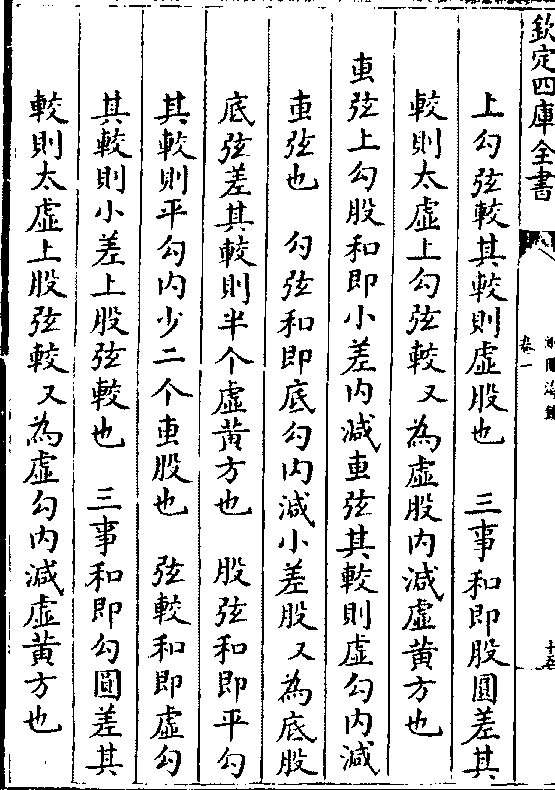 欽定四庫全書
卷一
上勾弦較其較則虛股也　三事和即股圓差其
較則太虛上勾弦較又為虛股内減虛黄方也
叀弦上勾股和即小差内減叀弦其較則虛勾内減
叀弦也　勾弦和即底勾内減小差股又為底股
底弦差其較則半个虛黄方也　股弦和即平勾
其較則平勾内少二个叀股也　弦較和即虛勾
其較則小差上股弦較也　三事和即勾圓差其
較則太虛上股弦較又為虛勾内減虛黄方也